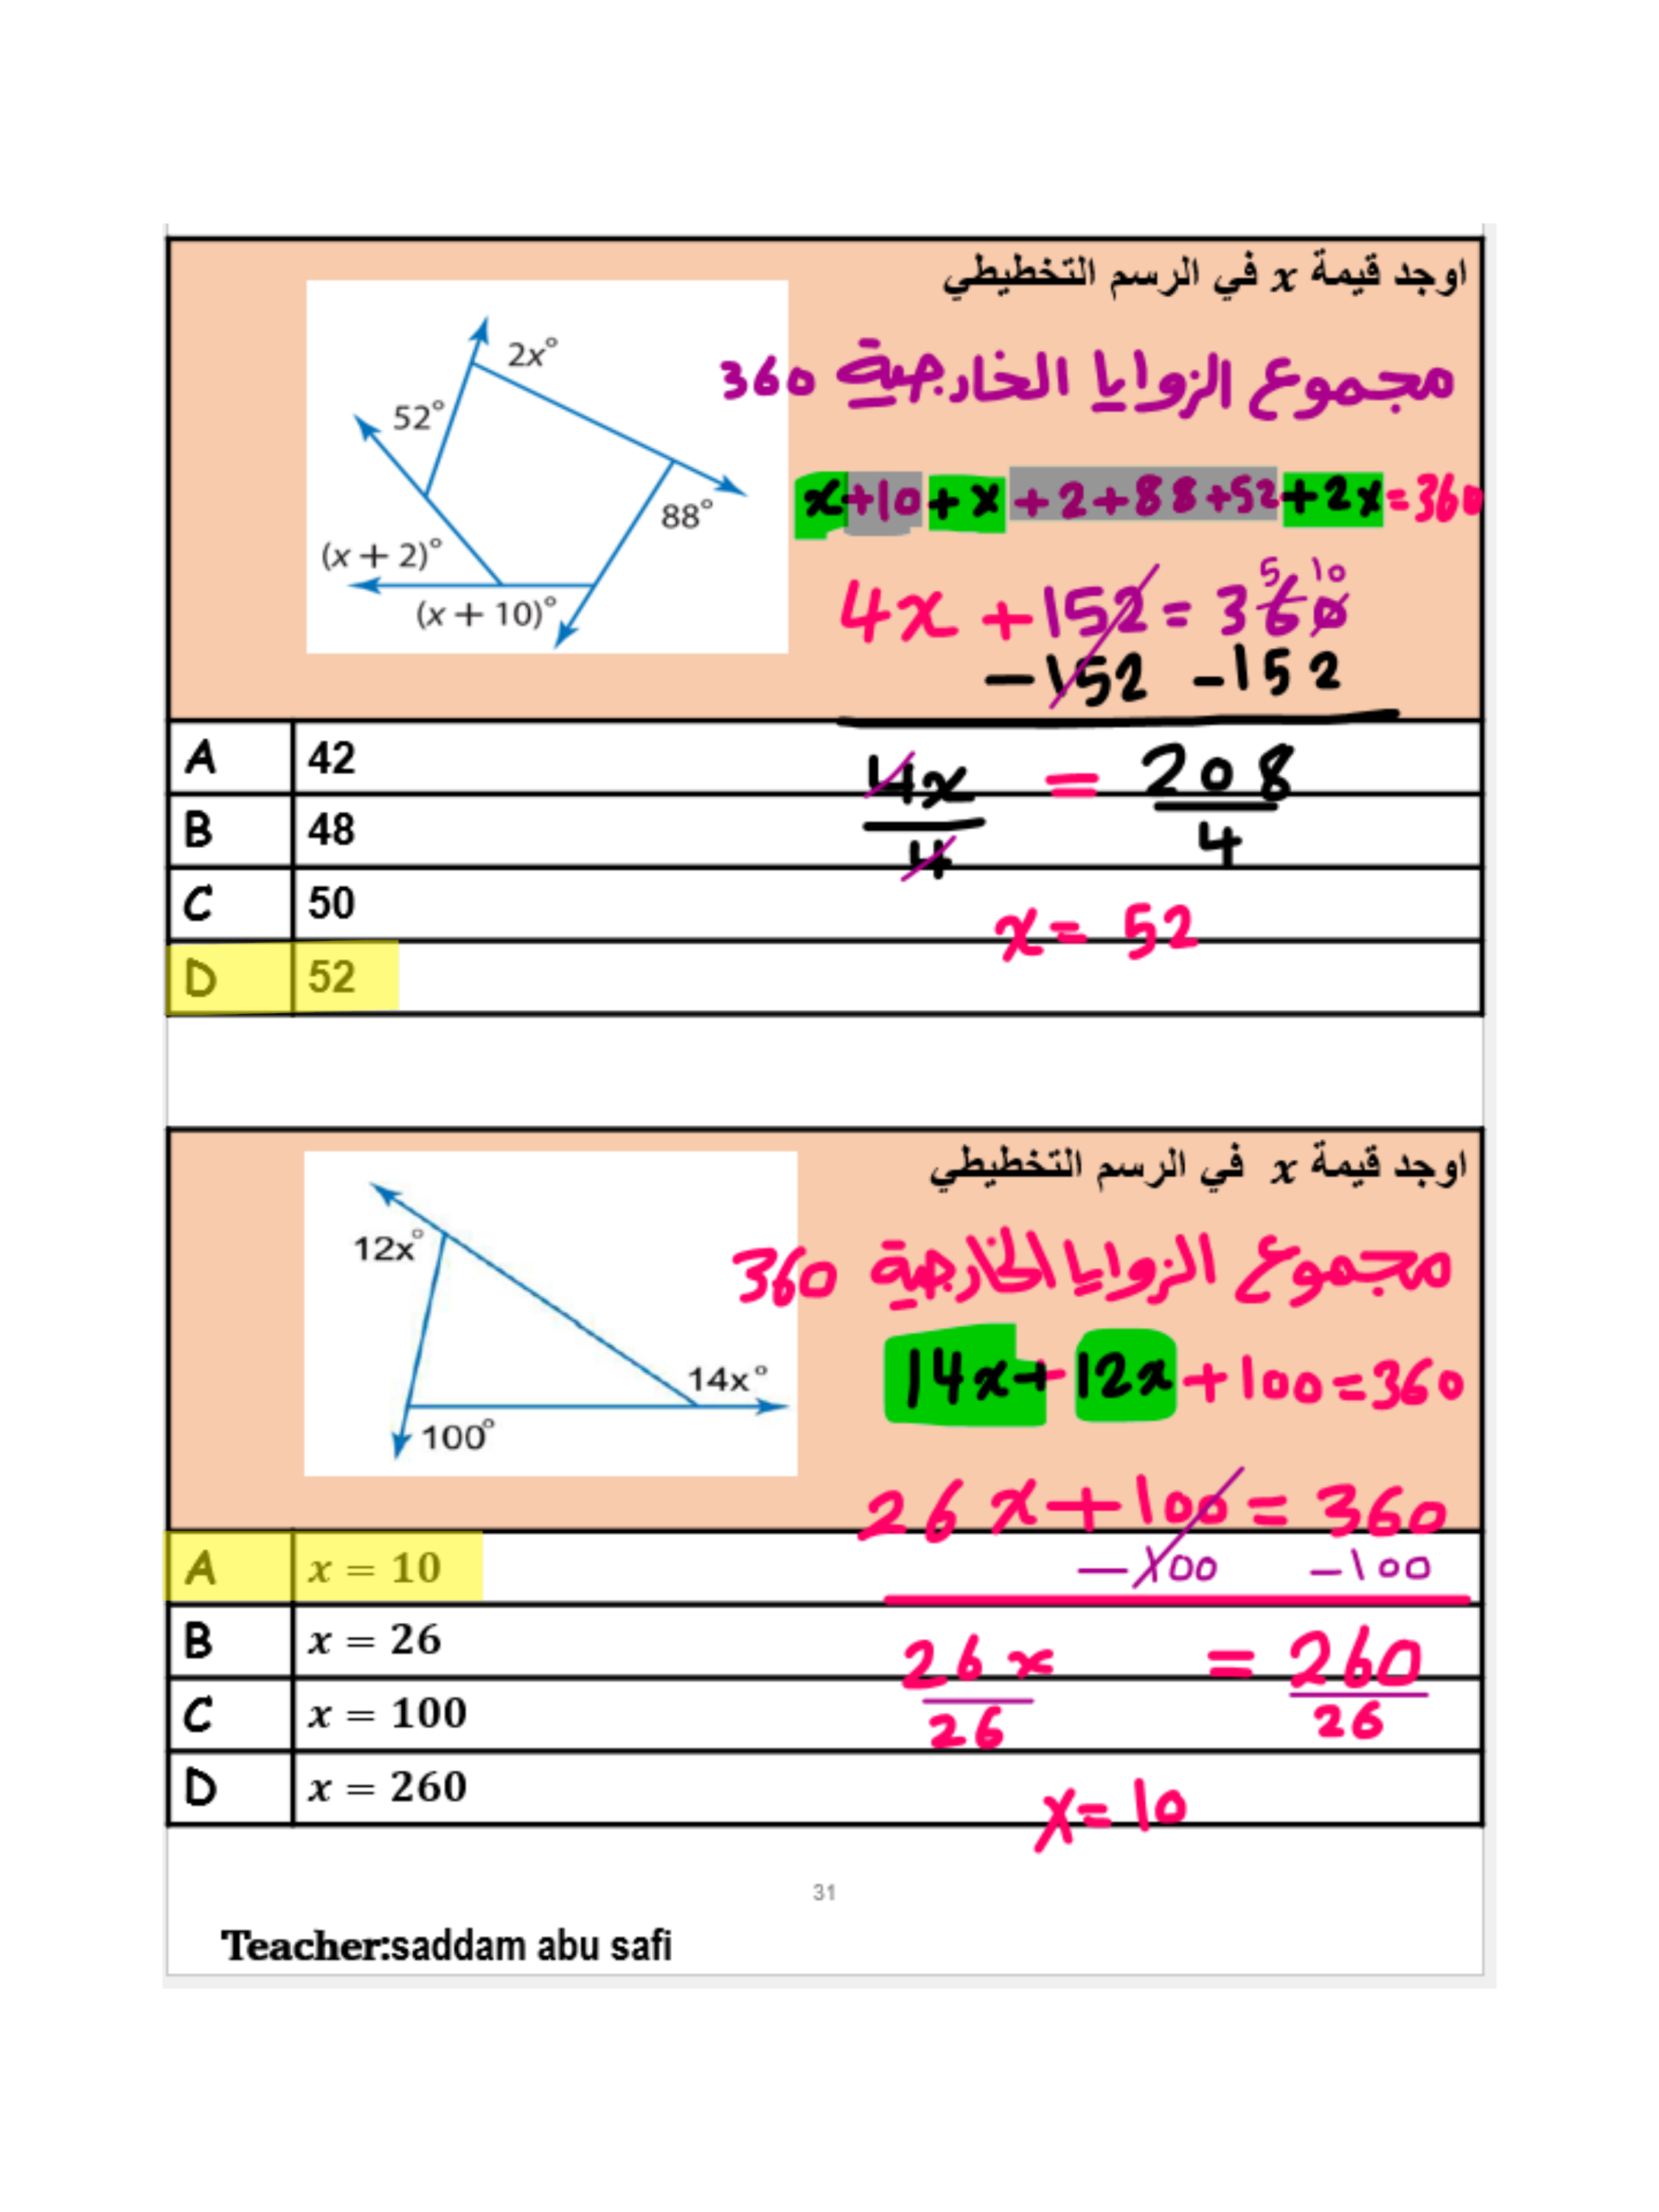 اوجد قيمة x في الرسم التخطيطي
2x°
52°
88°
(x + 2)°
(x + 10)°
مجموع الزوايا الخارجية 360
x+10+x+2+88+52+2x=360
5 10
4x +152= 360
-152 -152
4x = 208
4 4
x= 52
A 42
B 48
C 50
D 52
اوجد قيمة x في الرسم التخطيطي
12x°
14x°
100°
مجموع الزوايا الخارجية 360
14x+12x+100=360
26x+100= 360
-100 -100
26x = 260
26 26
x= 10
A x = 10
B x = 26
C x = 100
D x = 260
31
Teacher:saddam abu safi